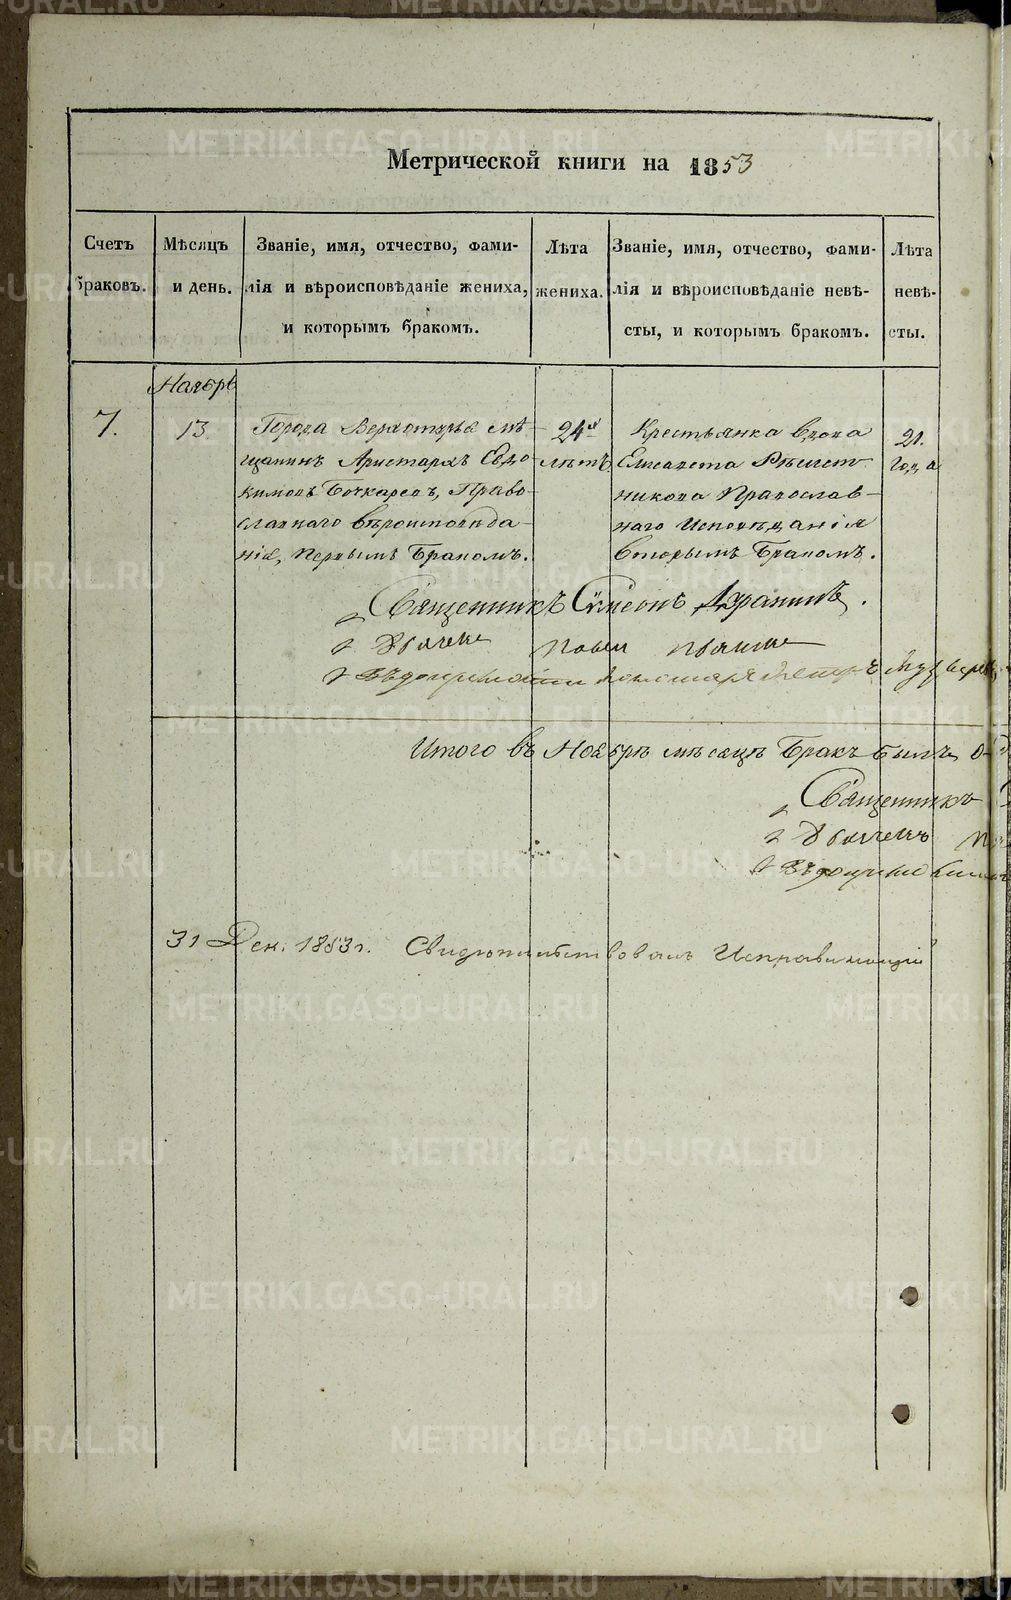 Метрической книги на 1853
Счетъ браковъ.
Мѣсяцъ и день.
Званіе, имя, отчество, фами-
лія и вѣроисповѣданіе жениха,
и которымъ бракомъ.
Лѣта жениха.
Званіе, имя, отчество, фами-
лія и вѣроисповѣданіе невѣ-
сты, и которымъ бракомъ.
Лѣта невѣ-
сты.
Ноябрь
7.
13.
Города Верхотурья мѣ-
щанинъ Аристархъ Евдо-
кимовъ Бочкаревъ, Право-
славнаго вѣроисповѣда-
нія, Первымъ Бракомъ.
24-хъ
лѣтъ
Крестьянка вдова
Елисавета Рѣшет-
никова Православ-
наго Исповѣданія
вторымъ Бракомъ.
21.
года
Священникъ Симеонъ
Дьячекъ Павел
Итого въ Ноябрѣ мѣсяцѣ Бракъ былъ
Священникъ
Дьячекъ
31 Дек. 1853 г. Свидѣтельствовалъ Исправляющій
METRIKI.GASO-URAL.RU